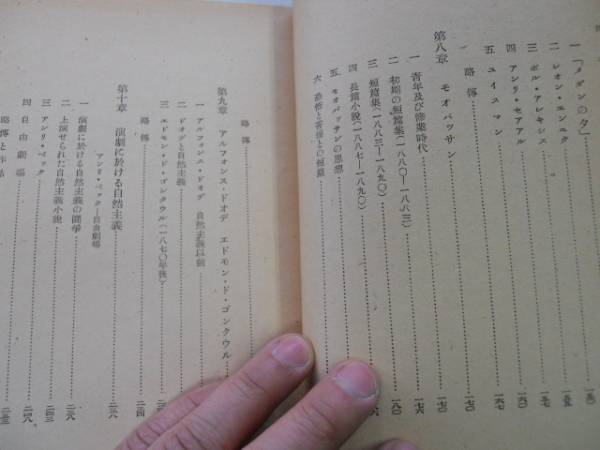 一 「メダンの夕」
二 レオン・エンニク
三 ポル・アレキシス
四 アンリ・セアアル
五 ユイスマン
略傳
第八章 モオパッサン
一 青年及び修業時代
二 初期の短篇集(一八八〇―一八八三)
三 短篇集(一八八三―一八九〇)
四 長篇小説(一八八七―一八九〇)
五 モオパッサンの思想
略傳
第九章 アルフォンス・ドオデ エドモン・ド・ゴンクウル
一 アルフォンス・ドオデ 自然主義以前
二 ドオデと自然主義
三 エドモン・ド・ゴンクウル(一八七〇年後)
略傳
第十章 演劇に於ける自然主義
アンリ・ベック―自由劇場
一 演劇に於ける自然主義の闘爭
二 上演せられた自然主義小説
三 アンリ・ベック
四 自由劇場